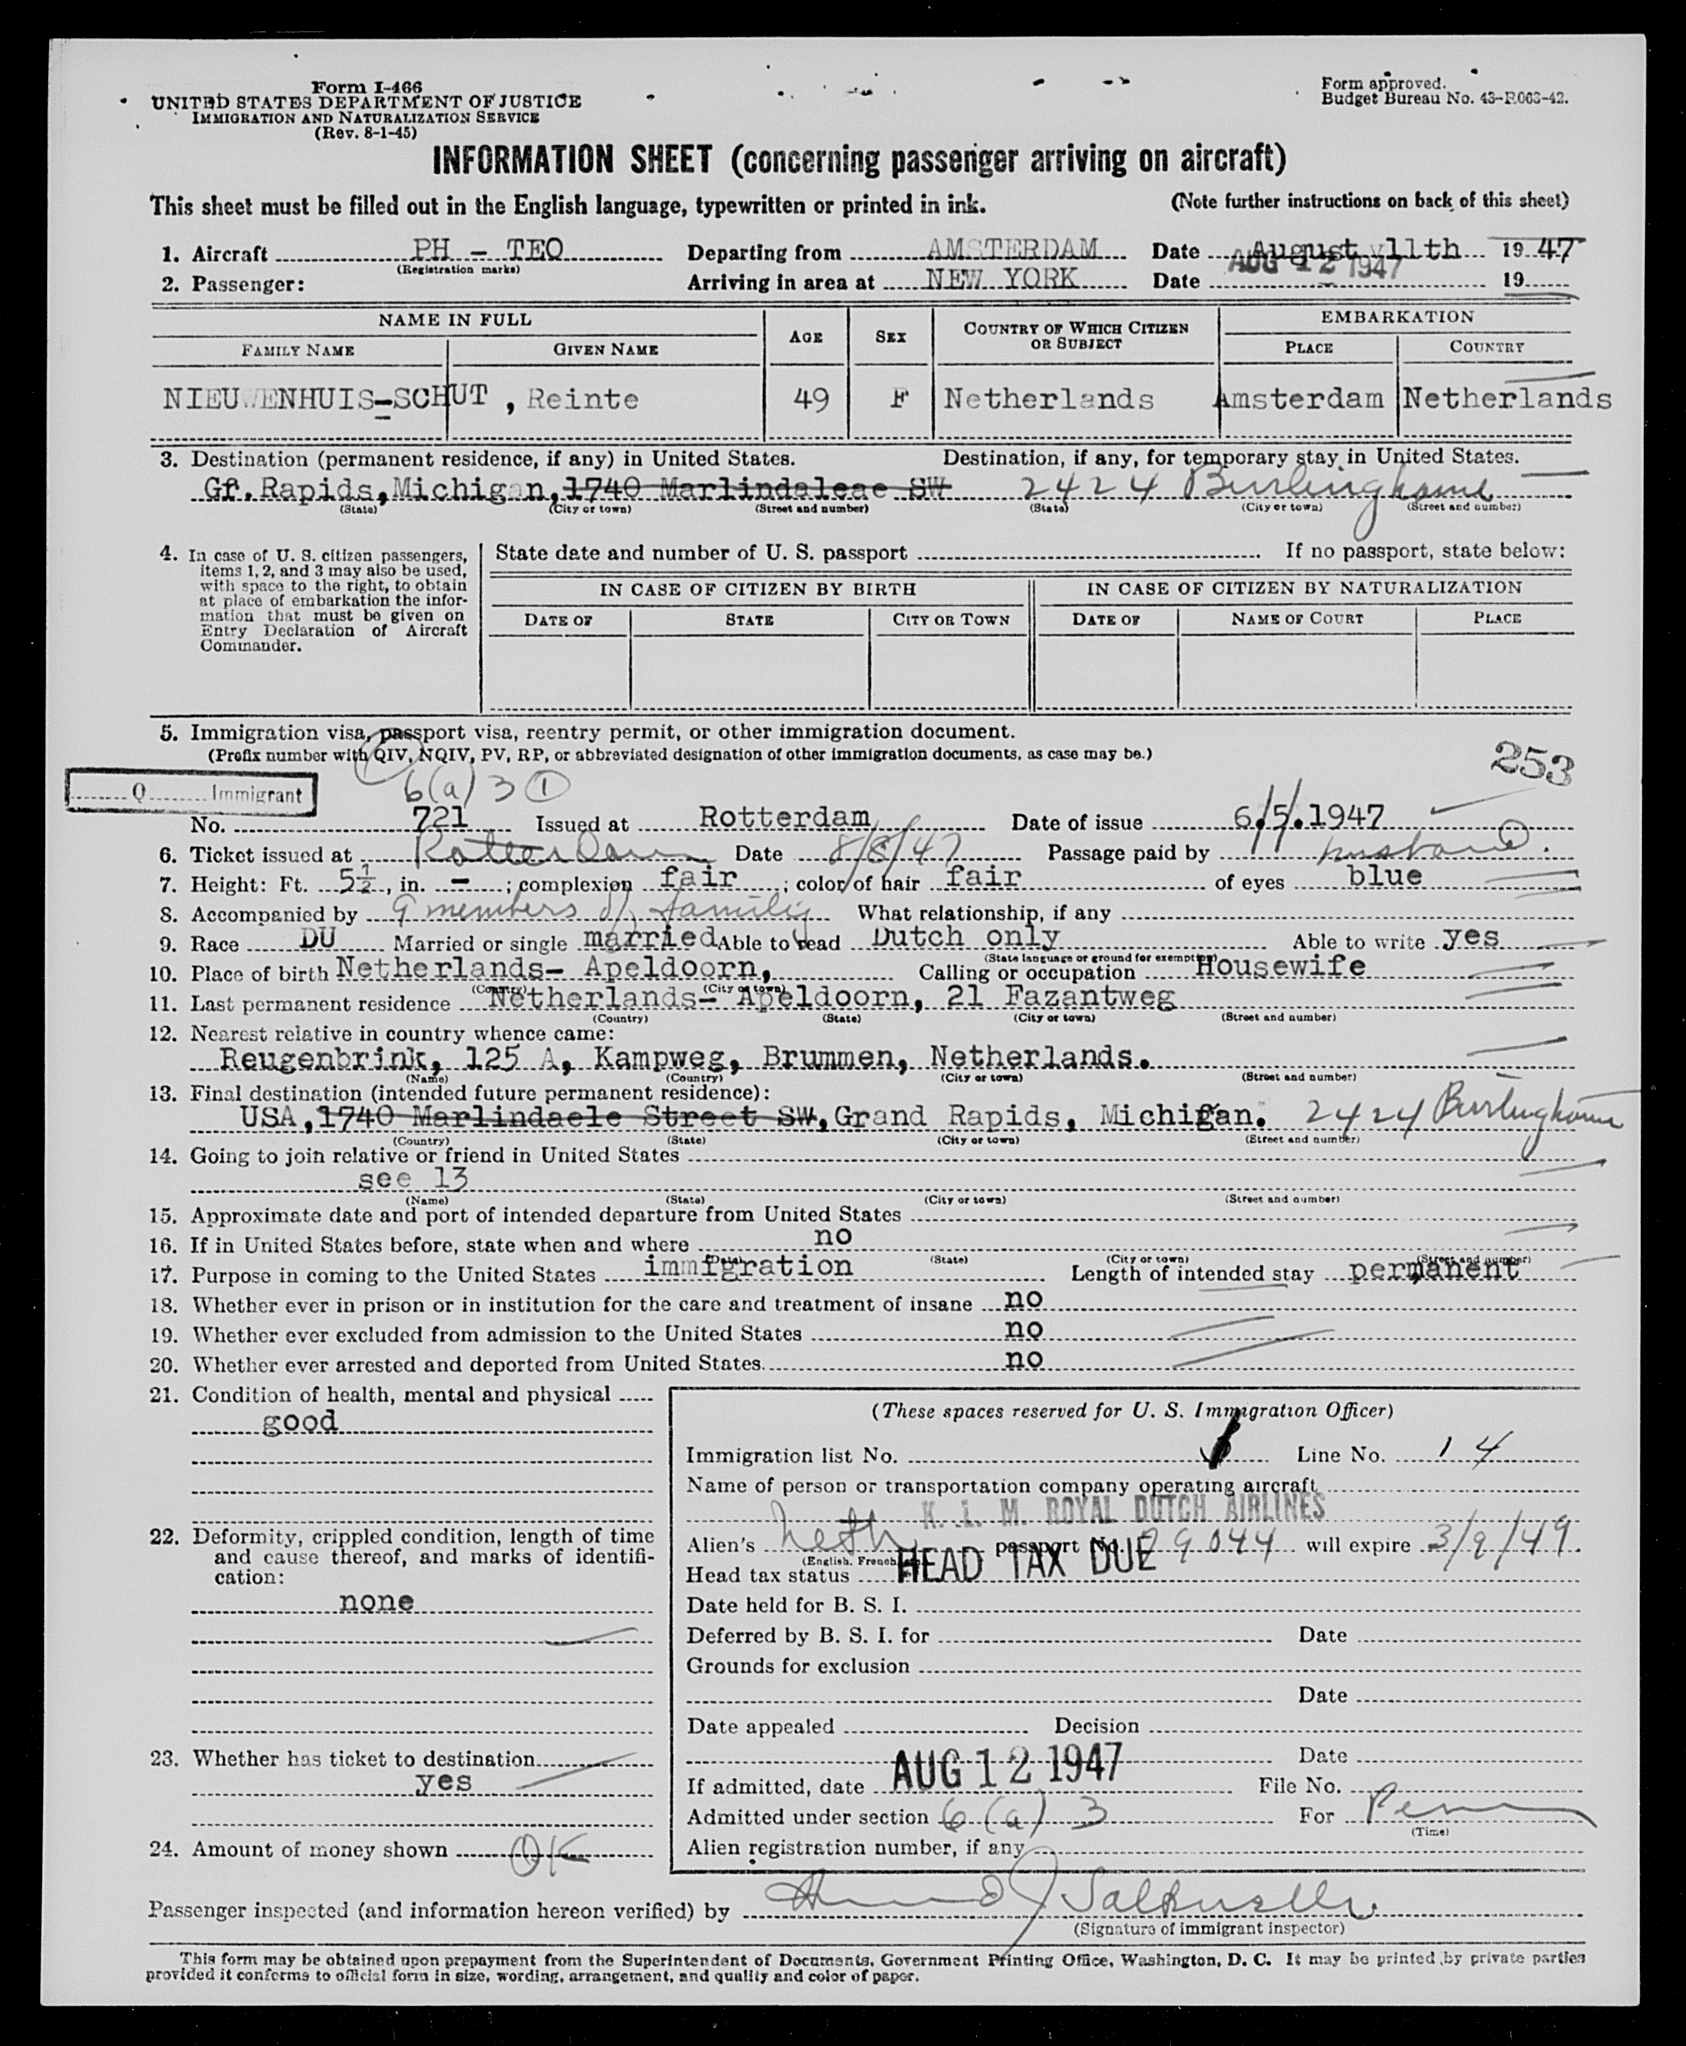 Form I-466
UNITED STATES DEPARTMENT OF JUSTICE
IMMIGRATION AND NATURALIZATION SERVICE
(Rev. 8-1-45)
Form approved.
Budget Bureau No. 43-R063-42.
INFORMATION SHEET (concerning passenger arriving on aircraft)
This sheet must be filled out in the English language, typewritten or printed in ink. (Note further instructions on back of this sheet)
1. Aircraft PH - TEO Departing from AMSTERDAM Date August 11th 1947
(Registration marks)
2. Passenger: Arriving in area at NEW YORK Date AUG 12 1947 19
NAME IN FULL AGE SEX COUNTRY OF WHICH CITIZEN OR SUBJECT EMBARKATION
FAMILY NAME GIVEN NAME PLACE COUNTRY
NIEUWENHUIS-SCHUT, Reinte 49 F Netherlands Amsterdam Netherlands
3. Destination (permanent residence, if any) in United States. Destination, if any, for temporary stay in United States.
Gr. Rapids, Michigan, 1740 Marlindaleae SW 2424 Burlinghame
(State) (City or town) (Street and number) (State) (City or town) (Street and number)
4. In case of U. S. citizen passengers, items 1, 2, and 3 may also be used, with space to the right, to obtain at place of embarkation the information that must be given on Entry Declaration of Aircraft Commander.
State date and number of U. S. passport If no passport, state below:
IN CASE OF CITIZEN BY BIRTH IN CASE OF CITIZEN BY NATURALIZATION
DATE OF STATE CITY OR TOWN DATE OF NAME OF COURT PLACE
5. Immigration visa, passport visa, reentry permit, or other immigration document.
(Prefix number with QIV, NQIV, PV, RP, or abbreviated designation of other immigration documents, as case may be.)
253
Q Immigrant 6(a) 3 1
No. 721 Issued at Rotterdam Date of issue 6.5.1947
6. Ticket issued at Rotterdam Date 8/8/47 Passage paid by husband.
7. Height: Ft. 5½, in. - ; complexion fair ; color of hair fair of eyes blue
8. Accompanied by 9 members of family What relationship, if any
9. Race DU Married or single married Able to read Dutch only Able to write yes
(State language or ground for exemption)
10. Place of birth Netherlands- Apeldoorn, Calling or occupation Housewife
(Country) (City or town)
11. Last permanent residence Netherlands- Apeldoorn, 21 Fazantweg
(Country) (State) (City or town) (Street and number)
12. Nearest relative in country whence came:
Reugenbrink, 125 A, Kampweg, Brummen, Netherlands.
(Name) (Country) (City or town) (Street and number)
13. Final destination (intended future permanent residence):
USA, 1740 Marlindaele Street SW, Grand Rapids, Michigan. 2424 Burlinghame
(Country) (State) (City or town) (Street and number)
14. Going to join relative or friend in United States
see 13
(Name) (State) (City or town) (Street and number)
15. Approximate date and port of intended departure from United States
16. If in United States before, state when and where no
(Date) (State) (City or town) (Street and number)
17. Purpose in coming to the United States immigration Length of intended stay permanent
18. Whether ever in prison or in institution for the care and treatment of insane no
19. Whether ever excluded from admission to the United States no
20. Whether ever arrested and deported from United States no
21. Condition of health, mental and physical
good
22. Deformity, crippled condition, length of time and cause thereof, and marks of identification:
none
23. Whether has ticket to destination
yes
24. Amount of money shown OK
(These spaces reserved for U. S. Immigration Officer)
Immigration list No. Line No. 14
Name of person or transportation company operating aircraft
K. L. M. ROYAL DUTCH AIRLINES
Alien's Neth passport No. 29044 will expire 3/9/49.
(English, French, etc.)
Head tax status HEAD TAX DUE
Date held for B. S. I.
Deferred by B. S. I. for Date
Grounds for exclusion
Date
Date appealed Decision
Date
If admitted, date AUG 12 1947 File No.
Admitted under section 6(a) 3 For Perm
(Time)
Alien registration number, if any
Passenger inspected (and information hereon verified) by
(Signature of immigrant inspector)
This form may be obtained upon prepayment from the Superintendent of Documents, Government Printing Office, Washington, D. C. It may be printed by private parties
provided it conforms to official form in size, wording, arrangement, and quality and color of paper.